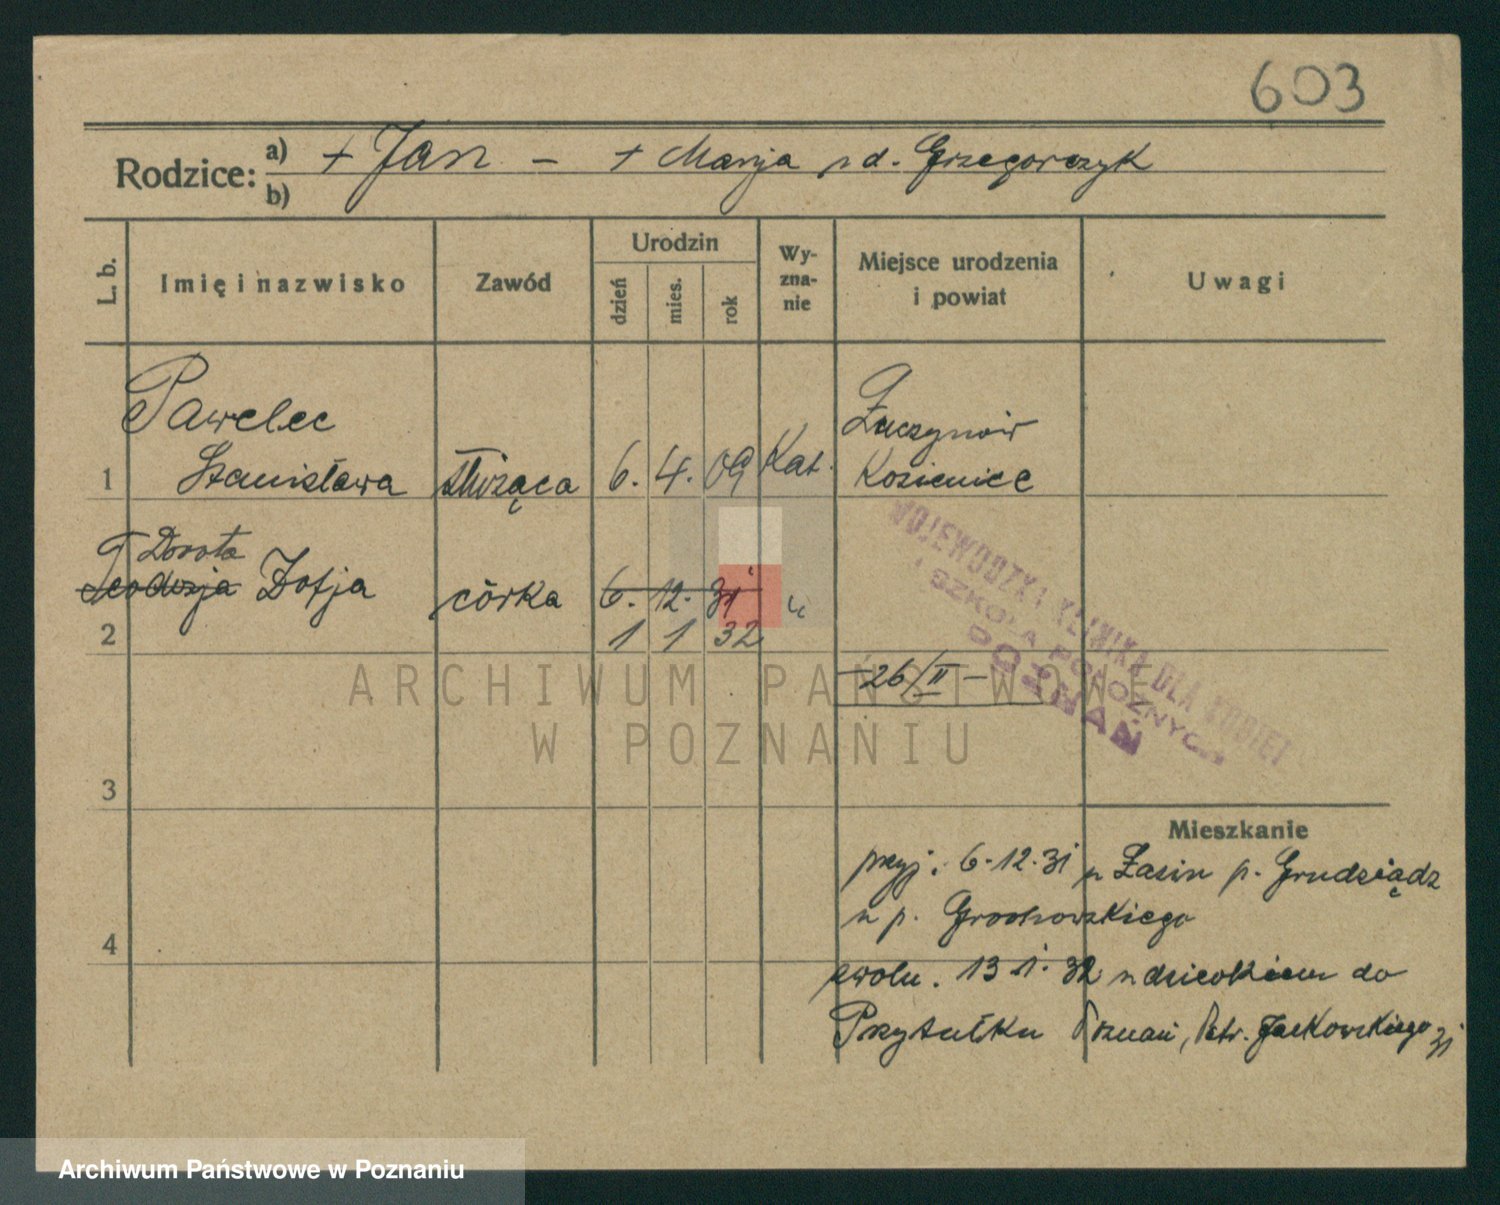 603
Rodzice: a) + Jan – + Marja z d. Grzegorczyk
b)
L. b. Imię i nazwisko Zawód Urodzin dzień mies. rok Wy-zna-nie Miejsce urodzenia i powiat Uwagi
Pawelec
1 Stanisława służąca 6. 4. 09 Kat. Kozienice
Dorota
Teodozja Zofja córka 6. 12. 31 "
2 1 1 32
WOJEWÓDZKA KLINIKA DLA KOBIET
I SZKOŁA POŁOŻNYCH
POZNAŃ
– 26/II –
ARCHIWUM PAŃSTWOWE
W POZNANIU
3
Mieszkanie
przyj. 6.12.31 z Łasin p. Grudziądz
u p. Grochowskiego
4
zwoln. 13 1. 32 z dzieckiem do
Przytułku Poznań, Patr. Jackowskiego 31
Archiwum Państwowe w Poznaniu